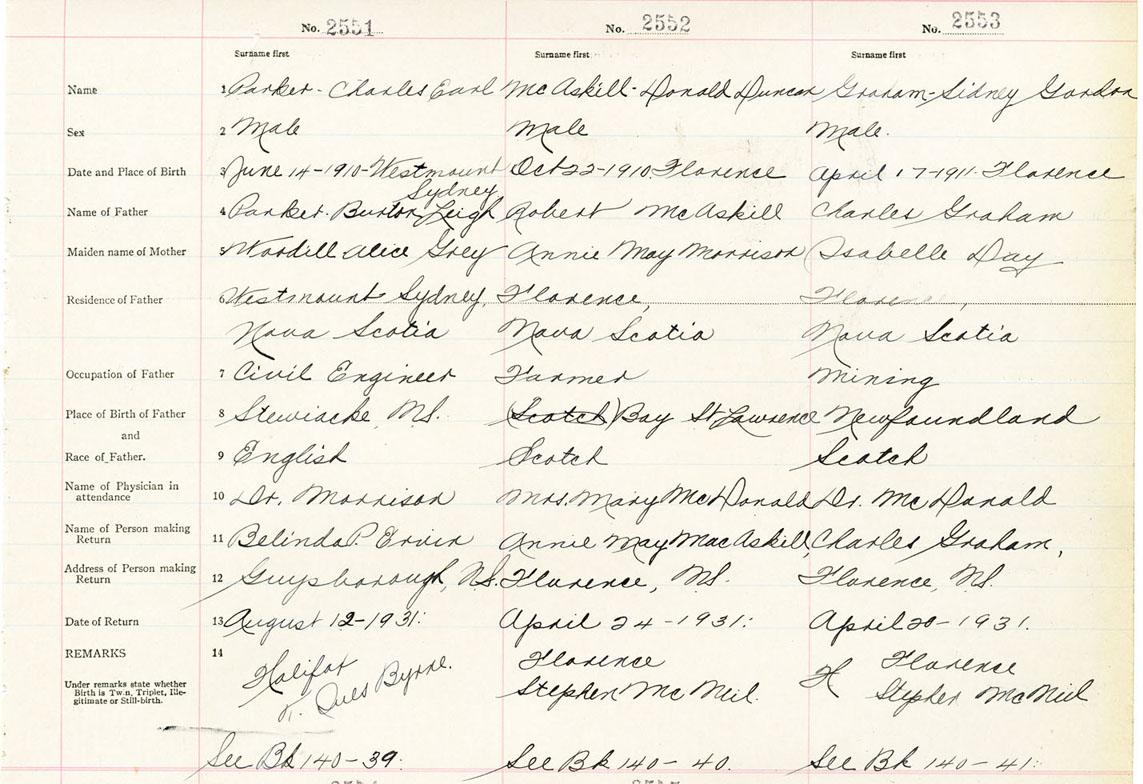 No. 2551 No. 2552 No. 2553
Surname first Surname first Surname first
Name 1 Parker - Charles Earl McAskill - Donald Duncan Graham - Sidney Gordon
Sex 2 Male Male Male.
Date and Place of Birth 3 June 14-1910-Westmount Oct 22-1910. Florence April 17-1911. Florence
Sydney
Name of Father 4 Parker. Burton Leigh Robert McAskill Charles Graham
Maiden name of Mother 5 Wordill Alice Grey Annie May Morrison Isabelle Day
Residence of Father 6 Westmount Sydney, Florence, Florence,
Nova Scotia Nova Scotia Nova Scotia
Occupation of Father 7 Civil Engineer Farmer Mining
Place of Birth of Father 8 Stewiacke N.S. (Scotch) Bay St Lawrence Newfoundland
and
Race of Father. 9 English Scotch Scotch
Name of Physician in
attendance 10 Dr. Morrison Mrs. Mary McDonald Dr. McDonald
Name of Person making
Return 11 Belinda P. Ervin Annie May MacAskill, Charles Graham,
Address of Person making
Return 12 Guysborough, N.S. Florence, N.S. Florence, N.S.
Date of Return 13 August 12-1931. April 24-1931. April 20-1931.
REMARKS 14 Halifax Florence H Florence
Under remarks state whether
Birth is Twin, Triplet, Ille-
gitimate or Still-birth.
Byrne. Stephen McNeil. Stephen McNeil
See Bk 140-39. See Bk 140-40. See Bk 140-41.